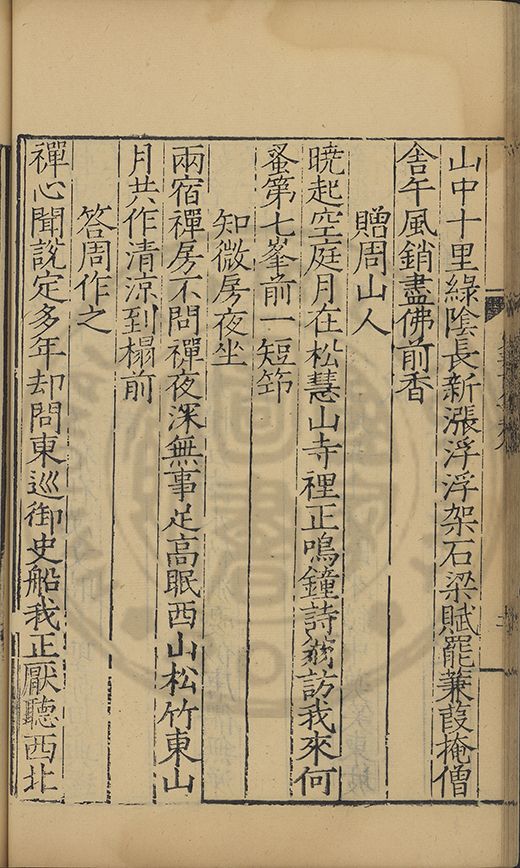 山中十里綠陰長新漲浮浮架石梁賦罷蒹葭掩僧
舍午風銷盡佛前香
贈周山人
曉起空庭月在松慧山寺裡正鳴鐘詩翁訪我來何
蚤第七峯前一短筇
知微房夜坐
兩宿禪房不問禪夜深無事足高眠西山松竹東山
月共作清涼到榻前
答周作之
禪心聞說定多年却問東巡御史船我正厭聽西北